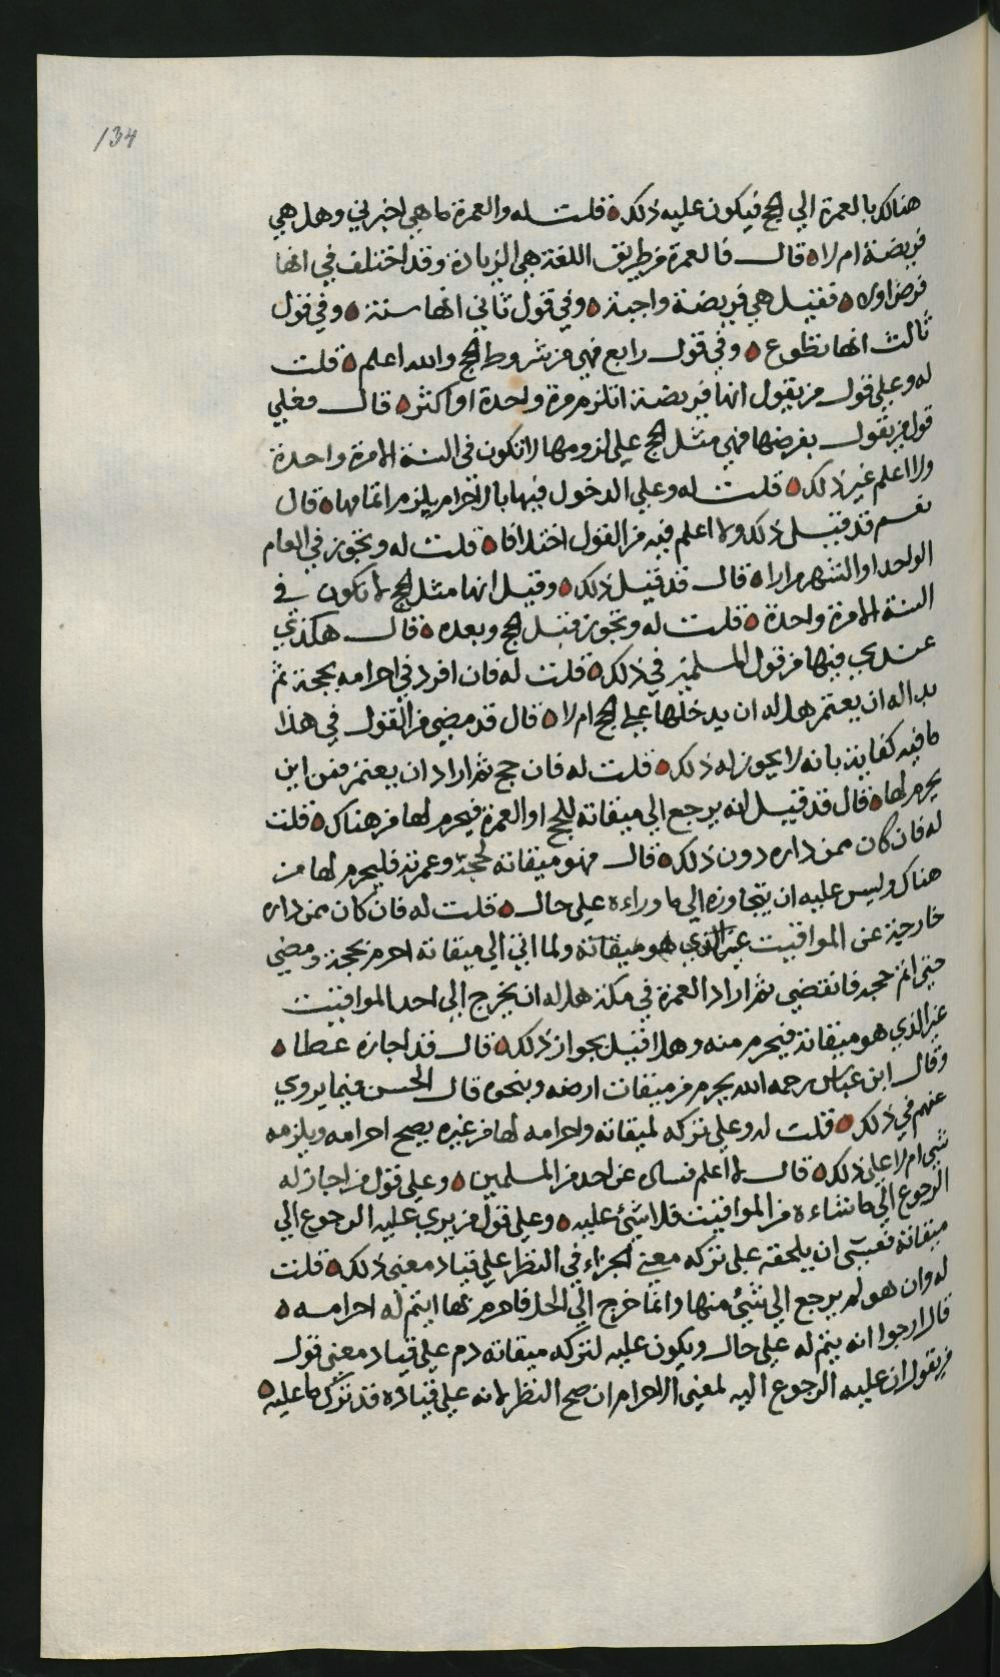 134
هنالك بالعمرة الي الحج فيكون عليه ذلك ه قلت له والعمرة ما هي اخبرني وهل هي
فريضة ام لا ه قال فالعمرة من طريق اللغة هي الزيادة وقد اختلف في انها
فرض اولا ه فقيل هي فريضة واجبة ه وفي قول ثاني انها سنة ه وفي قول
ثالث انها تطوع ه وفي قول رابع فهي من شروط الحج والله اعلم ه قلت
له وعلي قول من يقول انها فريضة اتلزم مرة واحدة او اكثر ه قال فعلي
قول من يقول بفرضها فهي مثل الحج علي لزومها لا تكون في السنة الا مرة واحدة
ولا اعلم غير ذلك ه قلت له وعلي الدخول فيها بالاحرام يلزم اتمامها ه قال
نعم قد قيل ذلك ولا اعلم فيه من القول اختلافا ه قلت له وتجوز في العام
الواحد او الشهر مرارا ه قال قد قيل ذلك ه وقيل انها مثل الحج لا تكون في
السنة الا مرة واحدة ه قلت له وتجوز قبل الحج وبعده ه قال هكذي
عندي فيها من قول المسلمين في ذلك ه قلت له فان افرد في احرامه بحجة ثم
بدا له ان يعتمر هل له ان يدخلها علي الحج ام لا ه قال قد مضي من القول في هذا
ما فيه كفاية بانه لا يجوز له ذلك ه قلت له فان حج ثم اراد ان يعتمر فمن اين
يحرم لها ه قال قد قيل انه يرجع الي ميقاته للحج او العمرة فيحرم لها من هناك ه قلت
له فان كان ممن داره دون ذلك ه قال فهو ميقاته لحجه وعمرته فليحرم لها من
هناك وليس عليه ان يتجاوزه الي ما وراءه علي حال ه قلت له فان كان ممن داره
خارجة عن المواقيت غير الذي هو ميقاته ولما اتي الي ميقاته احرم بحجة ومضي
حتي اتم حجه فانقضي ثم اراد العمرة في مكة هل له ان يخرج الي احد المواقيت
غير الذي هو ميقاته فيحرم منه وهل قيل بجواز ذلك ه قال قد اجازه عطا ه
وقال ابن عباس رحمه الله يحرم من ميقات ارضه وبنحوه قال الحسن فيما يروي
عنهم في ذلك ه قلت له وعلي تركه لميقاته واحرامه لها من غيره يصح احرامه ويلزمه
شي ام لا علي ذلك ه قال لا اعلم فساده عن احد من المسلمين ه وعلي قول من اجاز له
الرجوع الي ما شاءه من المواقيت فلا شئ عليه ه وعلي قول من يري عليه الرجوع الي
ميقاته فعسي ان يلحقه علي تركه معني الجزاء في النظر علي قياد معني ذلك ه قلت
له وان هو لم يرجع الي شئ منها وانما خرج الي الحل فاحرم لها ايتم له احرامه ه
قال ارجوا انه يتم له علي حال ويكون عليه لتركه ميقاته دم علي قياد معني قول
من يقول ان عليه الرجوع اليه لمعني الاحرام ان صح النظر لانه علي قياده قد ترك ما عليه ه